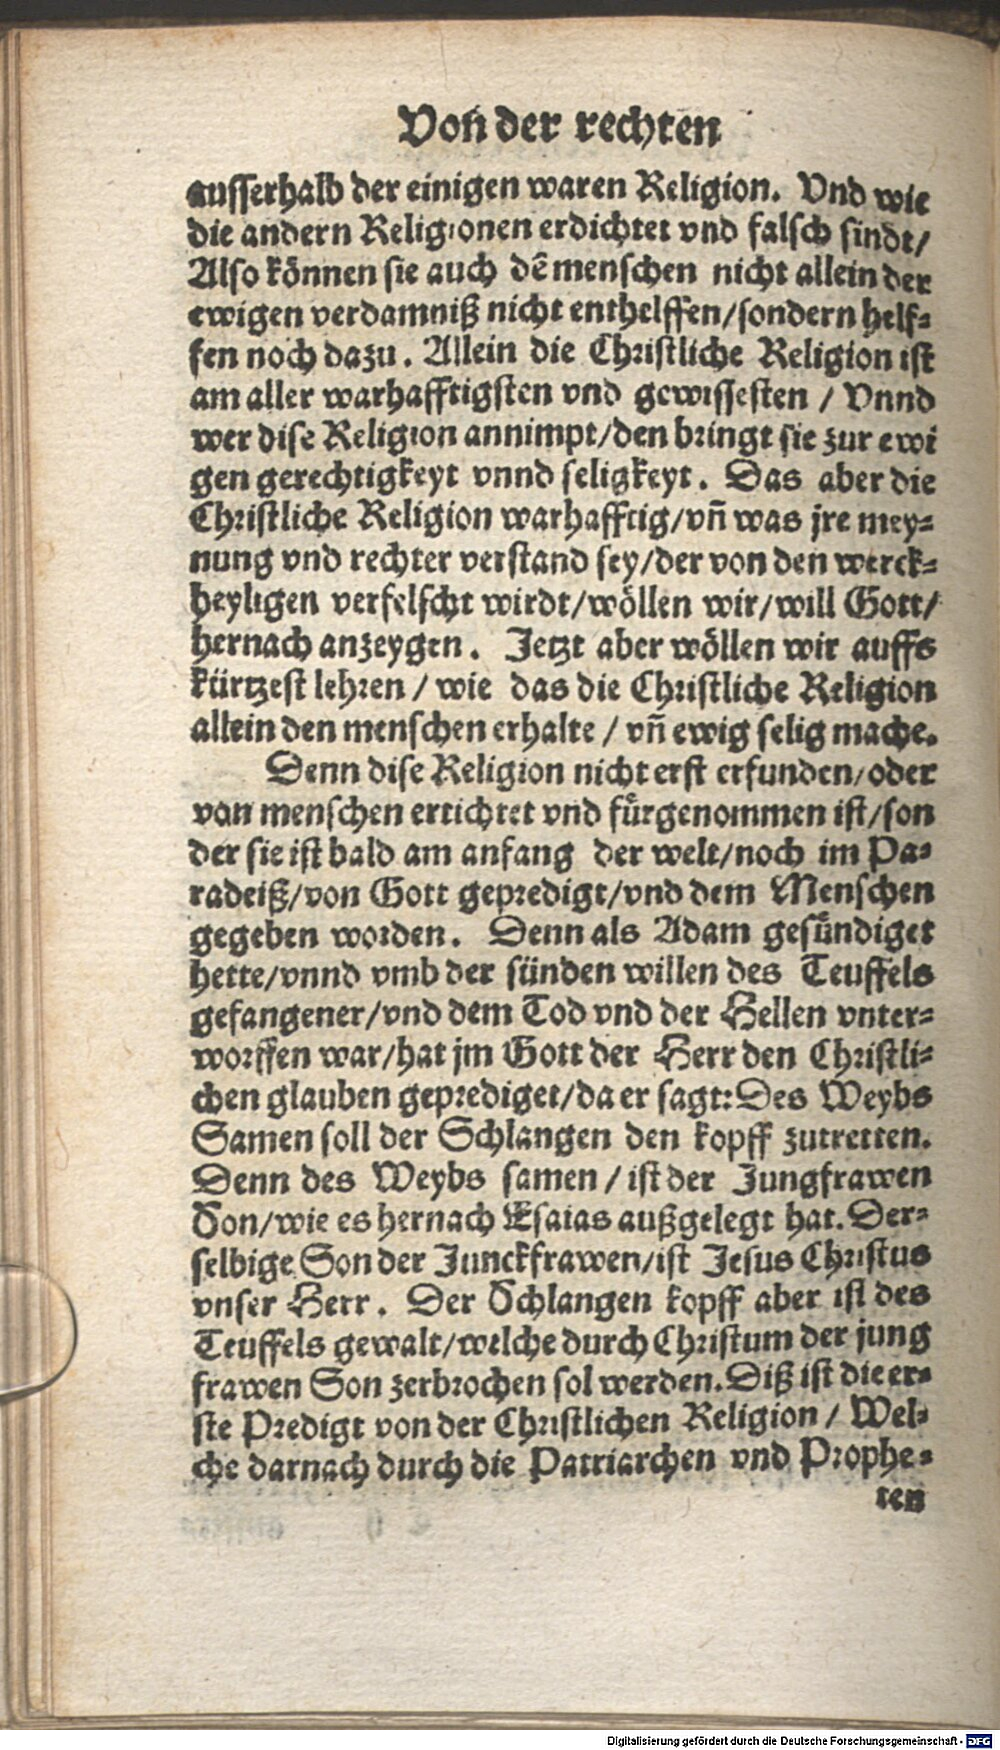 Von der rechten
ausserhalb der einigen waren Religion. Vnd wie
die andern Religionen erdichtet vnd falsch sindt/
Also können sie auch dē menschen nicht allein der
ewigen verdamniß nicht enthelffen/sondern helf-
fen noch dazu. Allein die Christliche Religion ist
am aller warhafftigsten vnd gewissesten / Vnnd
wer dise Religion annimpt/den bringt sie zur ewi
gen gerechtigkeyt vnnd seligkeyt. Das aber die
Christliche Religion warhafftig/vñ was jre mey-
nung vnd rechter verstand sey/der von den werck-
heyligen verfelscht wirdt/wöllen wir/will Gott/
hernach anzeygen. Jetzt aber wöllen wir auffs
kürtzest lehren / wie das die Christliche Religion
allein den menschen erhalte / vñ ewig selig mache.
Denn dise Religion nicht erst erfunden/oder
von menschen ertichtet vnd fürgenommen ist/son
der sie ist bald am anfang der welt/noch im Pa-
radeiß/von Gott gepredigt/vnd dem Menschen
gegeben worden. Denn als Adam gesündiget
hette/vnnd vmb der sünden willen des Teuffels
gefangener/vnd dem Tod vnd der Hellen vnter-
worffen war/hat jm Gott der Herr den Christli-
chen glauben geprediget/da er sagt: Des Weybs
Samen soll der Schlangen den kopff zutretten.
Denn des Weybs samen / ist der Jungfrawen
Son/wie es hernach Esaias außgelegt hat. Der-
selbige Son der Junckfrawen/ist Jesus Christus
vnser Herr. Der Schlangen kopff aber ist des
Teuffels gewalt/welche durch Christum der jung
frawen Son zerbrochen sol werden. Diß ist die er-
ste Predigt von der Christlichen Religion / Wel-
che darnach durch die Patriarchen vnd Prophe-
ten
Digitalisierung gefördert durch die Deutsche Forschungsgemeinschaft - DFG